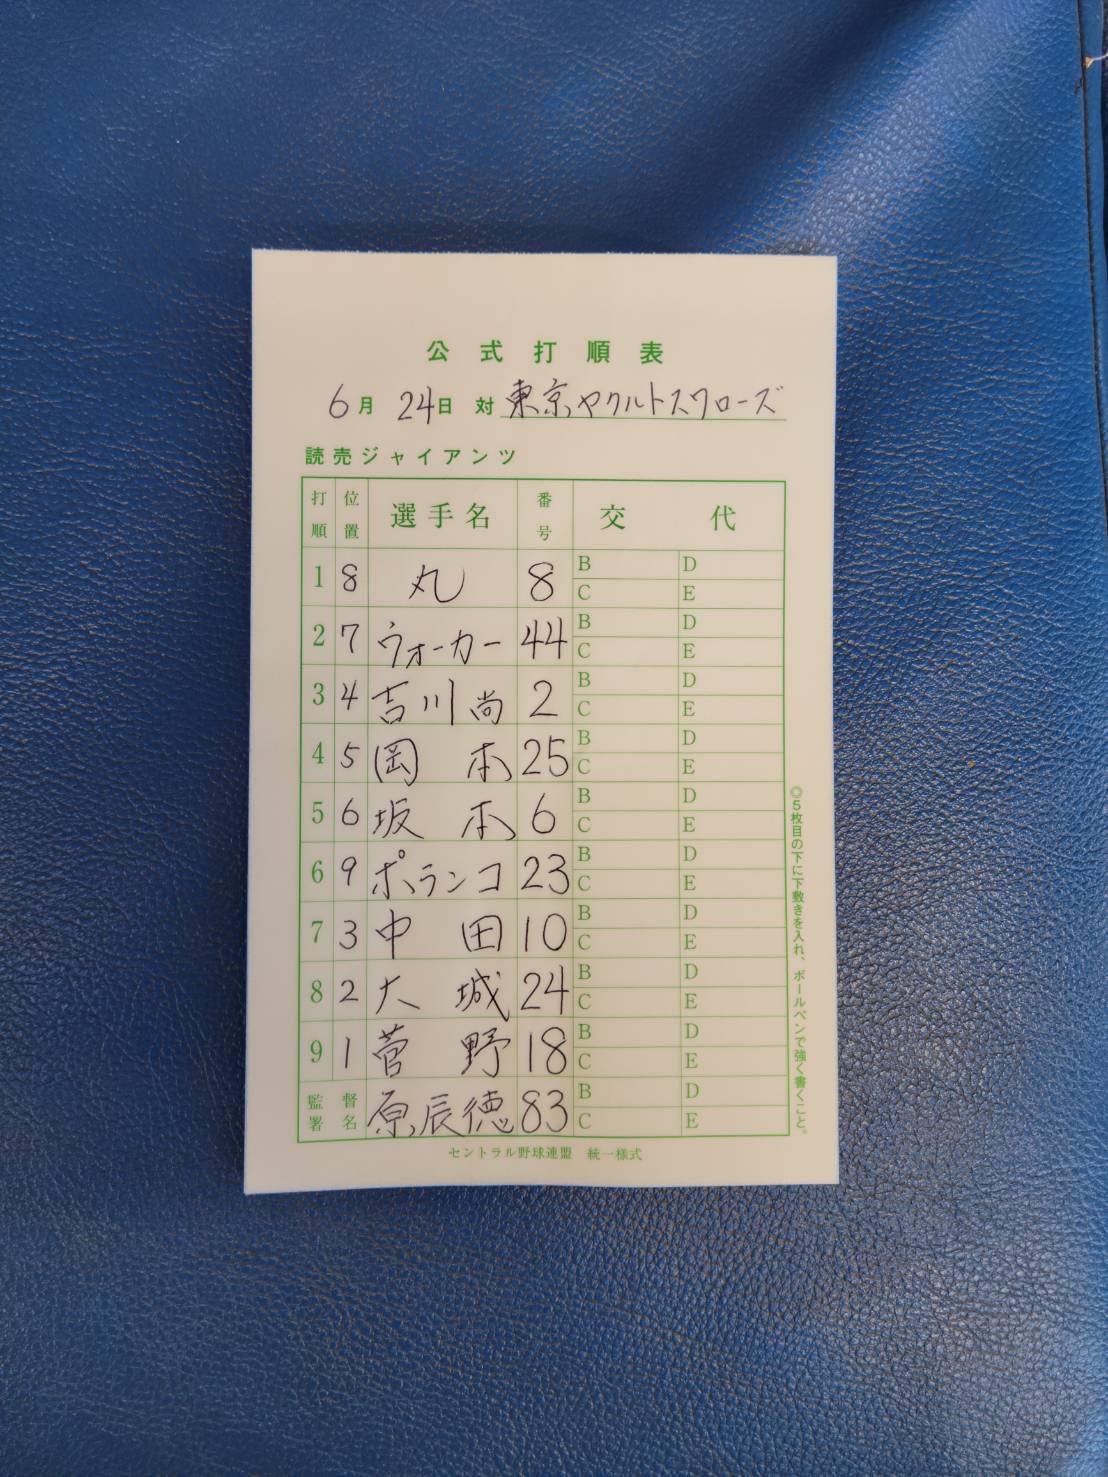 公式打順表
6月 24日 対 東京ヤクルトスワローズ
読売ジャイアンツ
打順 位置 選手名 番号 交代
1 8 丸 8 B D C E
2 7 ウォーカー 44 B D C E
3 4 吉川尚 2 B D C E
4 5 岡本 25 B D C E
5 6 坂本 6 B D C E
6 9 ポランコ 23 B D C E
7 3 中田 10 B D C E
8 2 大城 24 B D C E
9 1 菅野 18 B D C E
監督署名 原辰徳 83 B D C E
セントラル野球連盟 統一様式
◎5枚目の下に下敷きを入れ、ボールペンで強く書くこと。